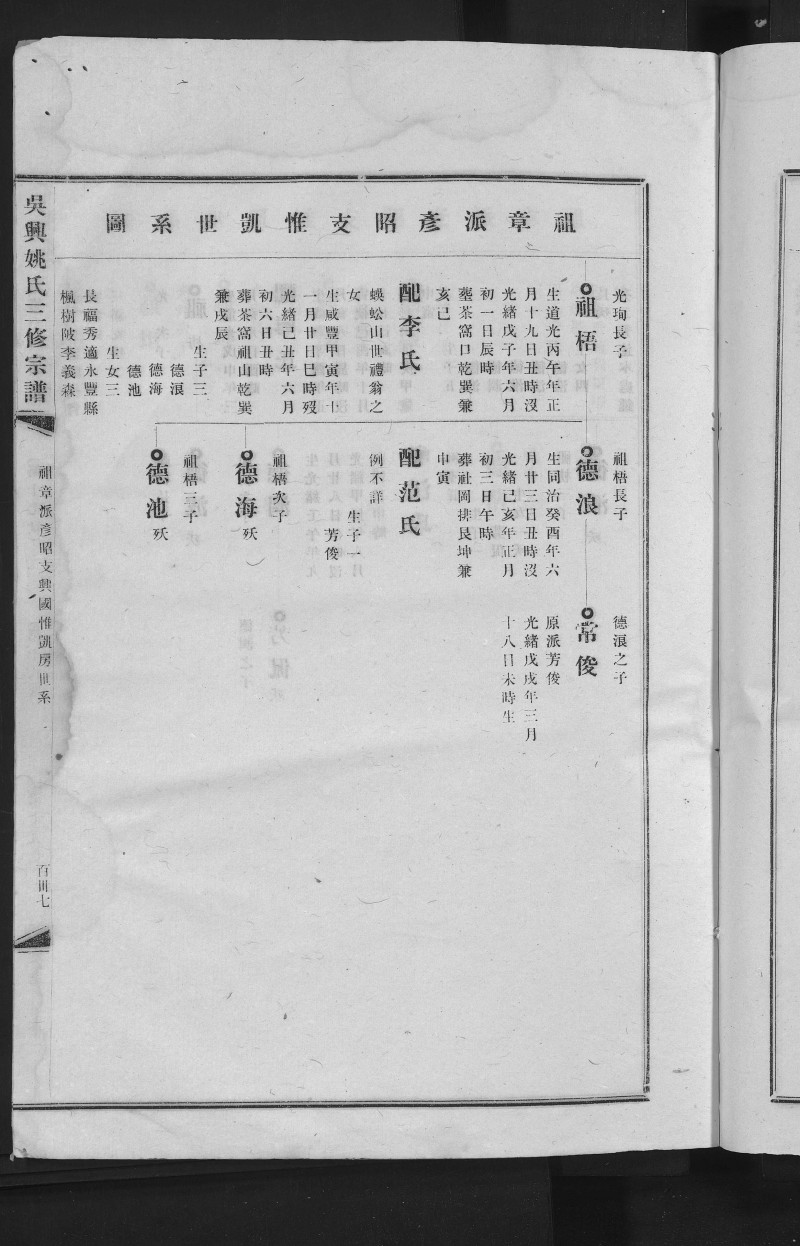 祖章派彥昭支惟凱世系圖
光珣長子
祖梧
生道光丙午年正
月十九日丑時沒
光緒戊子年六月
初一日辰時
塟茶窩口乾巽兼
亥巳
配李氏
蜈蚣山世禮翁之
女
生咸豐甲寅年十
一月廿日巳時歿
光緒己丑年六月
初六日丑時
葬茶窩祖山乾巽
兼戌辰
生子三
德浪
德海
德池
生女三
長福秀適永豐縣
楓樹陂李義森
祖梧長子
德浪
生同治癸酉年六
月廿三日丑時沒
光緒己亥年正月
初三日午時
葬社岡排艮坤兼
申寅
配范氏
例不詳
生子一
芳俊
祖梧次子
德海 殀
祖梧三子
德池 殀
德浪之子
常俊
原派芳俊
光緒戊戌年三月
十八日未時生
吳興姚氏三修宗譜
祖章派彥昭支興國惟凱房世系
百卌七